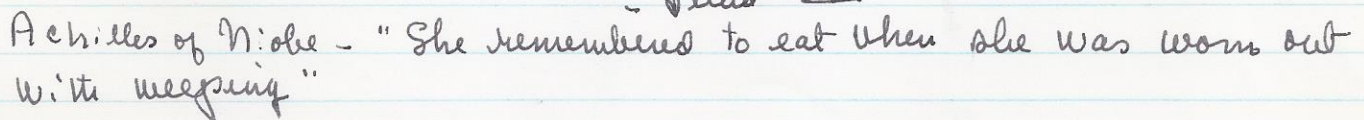 Achilles of Niobe - "She remembered to eat when she was worn out
with weeping"